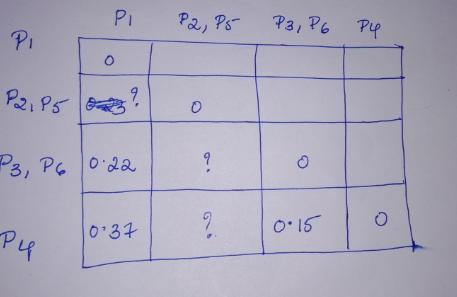 P1 P2, P5 P3, P6 P4
P1 0
P2, P5 ? 0
P3, P6 0.22 ? 0
P4 0.37 ? 0.15 0